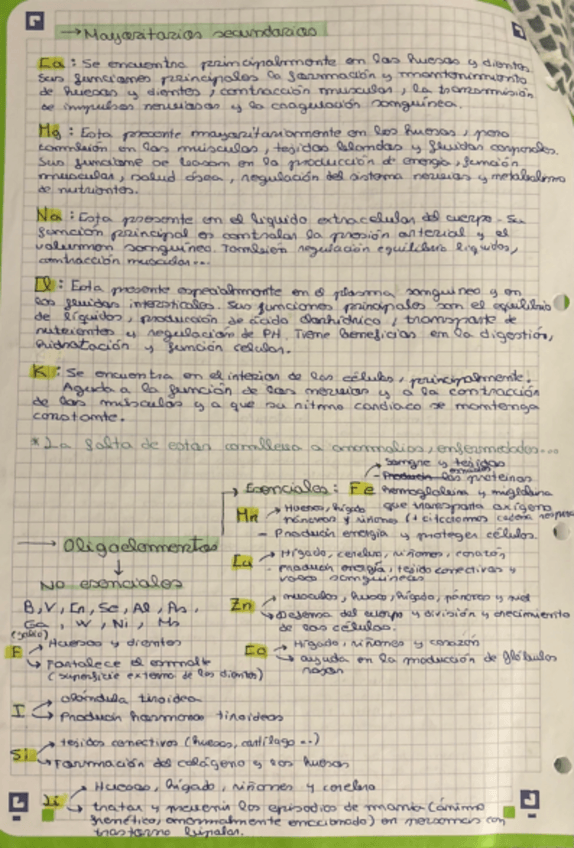 → Mayoritarios secundarios
Ca : Se encuentra principalmente en los huesos y dientes.
Sus funciones principales la formación y mantenimiento
de huesos y dientes, contracción muscular, la transmisión
de impulsos nerviosos y la coagulación sanguínea.
Mg : Esta presente mayoritariamente en los huesos, pero
también en los músculos, tejidos blandos y fluidos corporales.
Sus funciones se basan en la producción de energía, función
muscular, salud ósea, regulación del sistema nervioso y metabolismo
de nutrientes.
Na : Esta presente en el líquido extracelular del cuerpo. Su
función principal es controlar la presión arterial y el
volumen sanguíneo. También regulación equilibrio líquidos,
contracción muscular...
Cl : Esta presente especialmente en el plasma sanguíneo y en
los fluidos intersticiales. Sus funciones principales son el equilibrio
de líquidos, producción de ácido clorhídrico, transporte de
nutrientes y regulación de PH. Tiene beneficios en la digestión,
hidratación y función celular.
K : Se encuentra en el interior de las células, principalmente.
Ayuda a la función de los nervios y a la contracción
de los músculos y a que su ritmo cardiaco se mantenga
constante.
* La falta de estas conlleva a anomalías, enfermedades...
→ Esenciales : Fe → Sangre y tejidos
- Producir las proteínas
hemoglobina y mioglobina
que transporta oxígeno
Mn → Huesos, hígado
páncreas y riñones
- Producir energía y proteger células.
→ Oligoelementos
Cu → Hígado, cerebro, riñones, corazón
- Producir energía, tejido conectivos y
vasos sanguíneos
↓
No esenciales
B, V, Cr, Se, Al, As,
Ga, W, Ni, Mo
(galio)
Zn → músculos, hueso, hígado, páncreas y piel
↳ Defensa del cuerpo y división y crecimiento
de las células.
Co → Hígado, riñones y corazón
↳ ayuda en la producción de glóbulos
rojos
F → Huesos y dientes
↳ Fortalece el esmalte
(superficie externa de los dientes)
I → Glándula tiroidea
↳ Producir hormonas tiroideas
Si → tejidos conectivos (huesos, cartílago ..)
↳ Formación del colágeno y los huesos
Li → Huesos, hígado, riñones y cerebro
↳ tratar y prevenir los episodios de manía (ánimo
frenético, anormalmente emocionado) en personas con
trastorno bipolar.